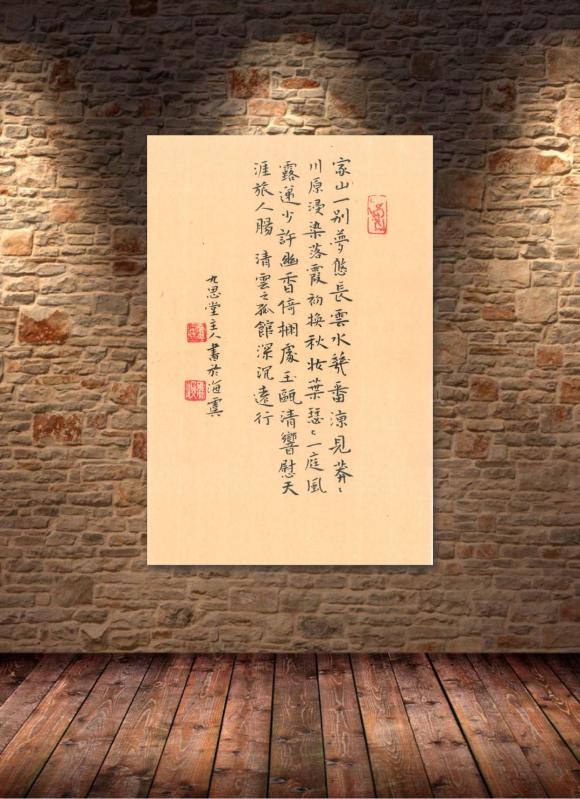 家山一别夢悠長雲水幾番凉見莽〻
川原浸染落霞初換秋妆葉瑟〻一庭風
露递少許幽香倚欄處玉甌清響慰天
涯旅人腸 清雲之孤館深沉遠行
九思堂主人書於海虞